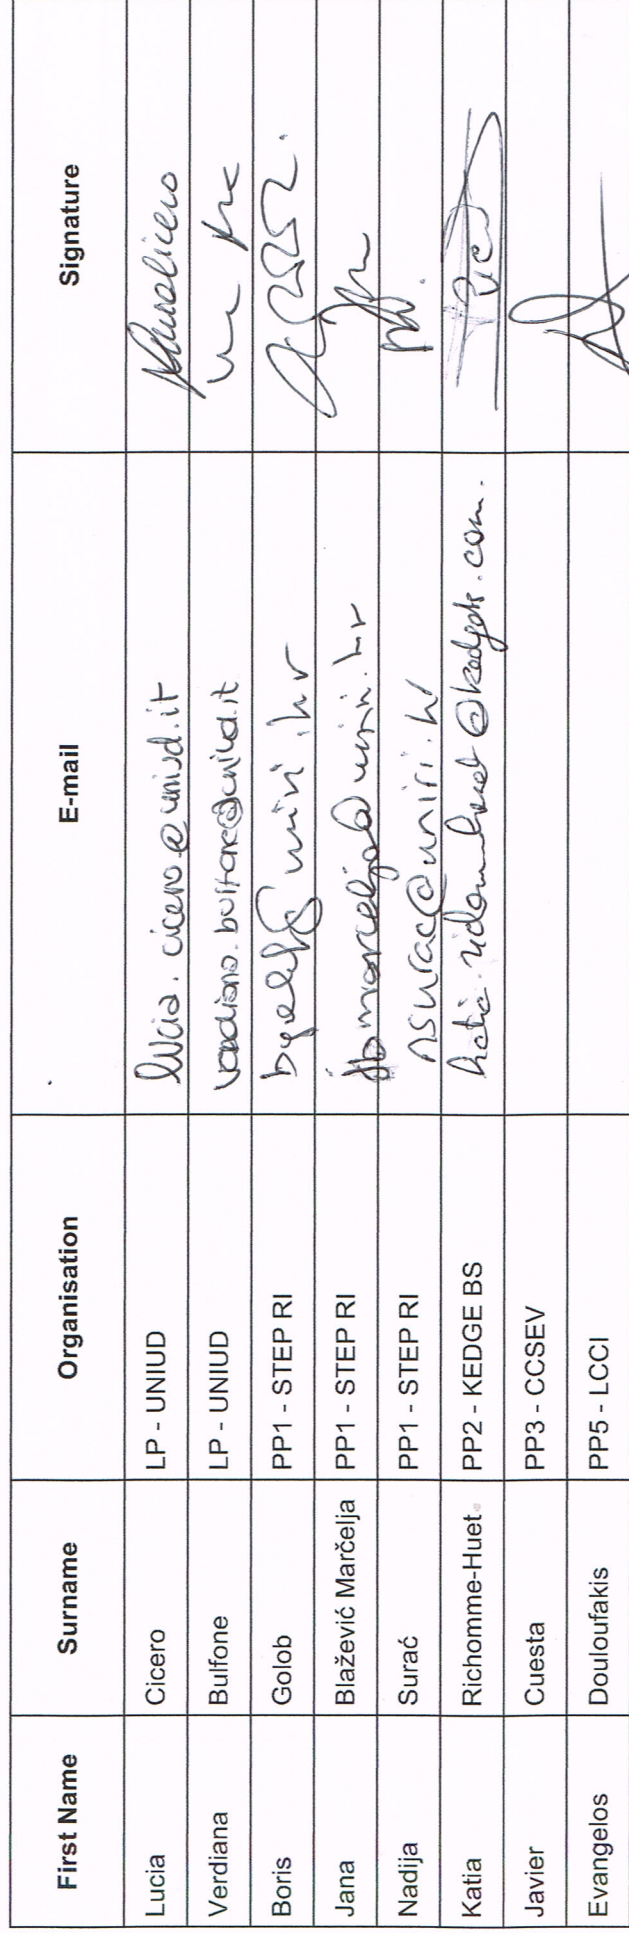 First Name Surname Organisation E-mail Signature
Lucia Cicero LP - UNIUD lucia.cicero@uniud.it
Verdiana Bulfone LP - UNIUD verdiana.bulfone@uniud.it
Boris Golob PP1 - STEP RI uniri.hr
Jana Blažević Marčelja PP1 - STEP RI jbmarcelja@uniri.hr
Nadija Surać PP1 - STEP RI nsurac@uniri.hr
Katia Richomme-Huet PP2 - KEDGE BS
Javier Cuesta PP3 - CCSEV
Evangelos Douloufakis PP5 - LCCI